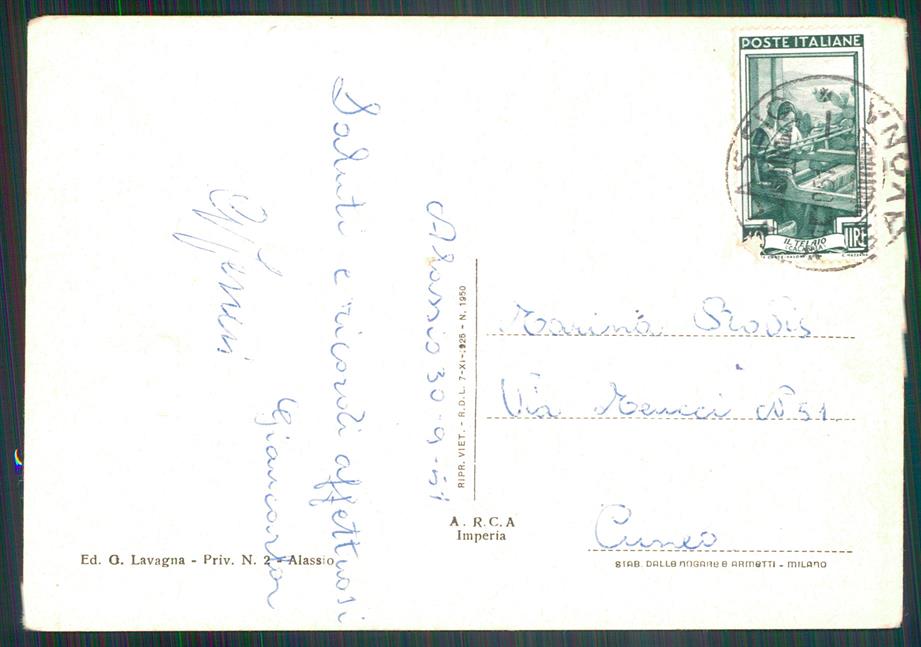 POSTE ITALIANE
IL TELAIO
(CALABRIA)
LIRE
ALASSIO
SAVONA
Alassio 30-9-51
Saluti e ricordi affettuosi
Giancarlo
Marina
Via Meucci N° 51
Cuneo
RIPR. VIET. - R.D.L. 7-XI-1925 - N. 1950
A. R. C. A
Imperia
Ed. G. Lavagna - Priv. N. 2 - Alassio
STAB. DALLE NOGARE E ARMETTI - MILANO